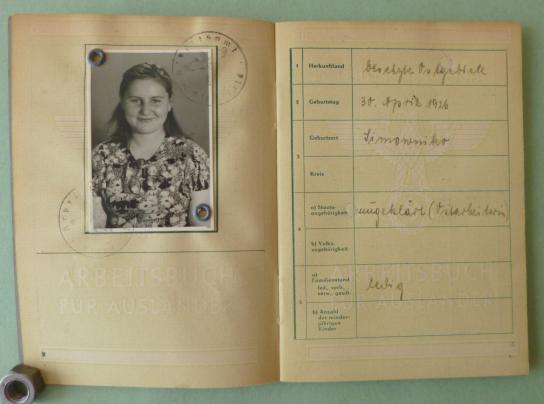 ARBEITSBUCH
FÜR AUSLÄNDER
1 Herkunftland besetzte Ostgebiete
2 Geburtstag 30. April 1926
3 Geburtsort Simowniko
Kreis
4 a) Staats-
angehörigkeit ungeklärt (Ostarbeiterin)
b) Volks-
zugehörigkeit
5 a)
Familienstand ledig
led., verh.,
verw., gesch.
b) Anzahl
der minder-
jährigen
Kinder